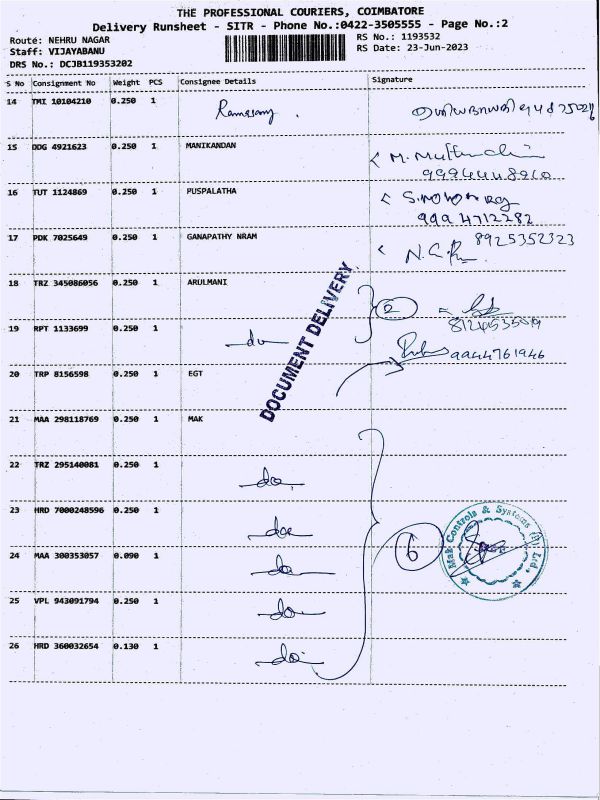 THE PROFESSIONAL COURIERS, COIMBATORE
Delivery Runsheet - SITR - Phone No.:0422-3505555 - Page No.:2
Route: NEHRU NAGAR
RS No.: 1193532
Staff: VIJAYABANU
RS Date: 23-Jun-2023
DRS No.: DCJB119353202
S No Consignment No Weight PCS Consignee Details Signature
14 TMI 10104210 0.250 1 Ramasamy.
15 DDG 4921623 0.250 1 MANIKANDAN
16 TUT 1124869 0.250 1 PUSPALATHA
9994712282
17 PDK 7025649 0.250 1 GANAPATHY NRAM 8925352323
18 TRZ 345086056 0.250 1 ARULMANI
2
19 RPT 1133699 0.250 1 do
9944761946
20 TRP 8156598 0.250 1 EGT
DOCUMENT DELIVERY
21 MAA 298118769 0.250 1 MAK
22 TRZ 295140081 0.250 1 do
23 HRD 7000248596 0.250 1 do
24 MAA 300353057 0.090 1 do
6
Mak Controls & Systems (P) Ltd.,
25 VPL 943091794 0.250 1 do
26 HRD 360032654 0.130 1 do